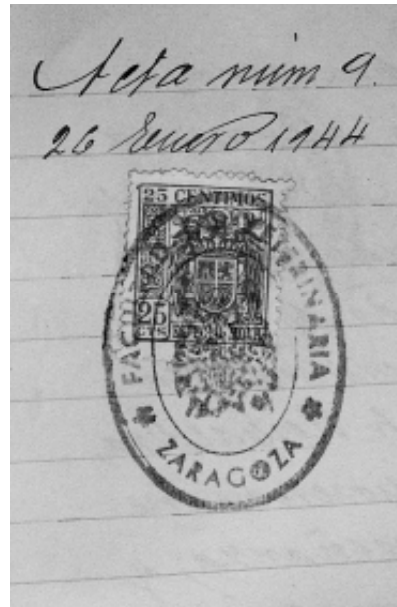 Acta núm 9.
26 Enero 1944
25 CENTIMOS
25
CTS
FACULTAD DE VETERINARIA
ZARAGOZA